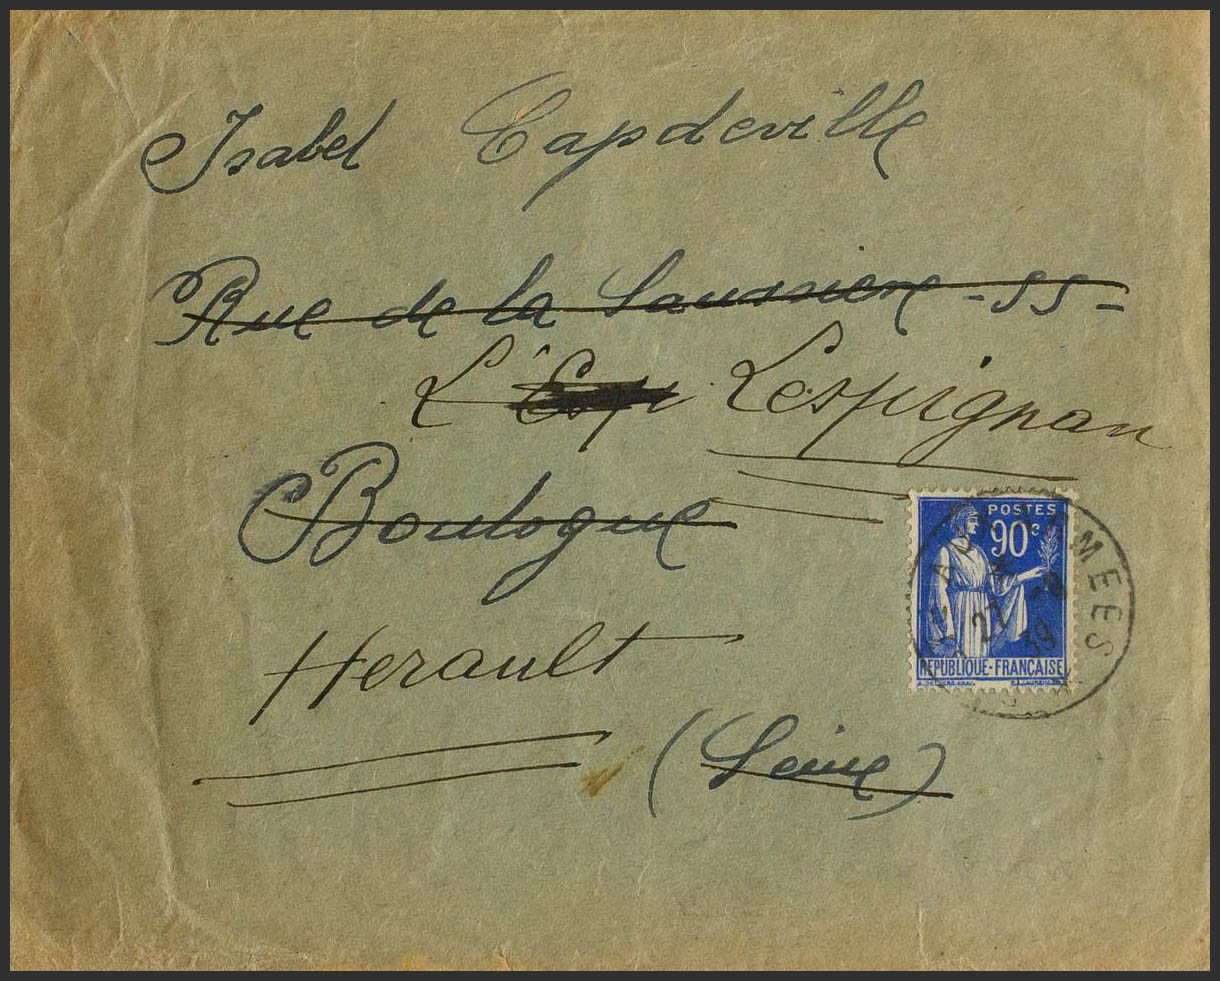 Isabel Capdeville
Rue de la Saussiere - 55 -
L' Lespignan
Boulogne
Herault
(Seine)
POSTES
90c
RÉPUBLIQUE-FRANÇAISE
AUX ARMEES
27 -9
39